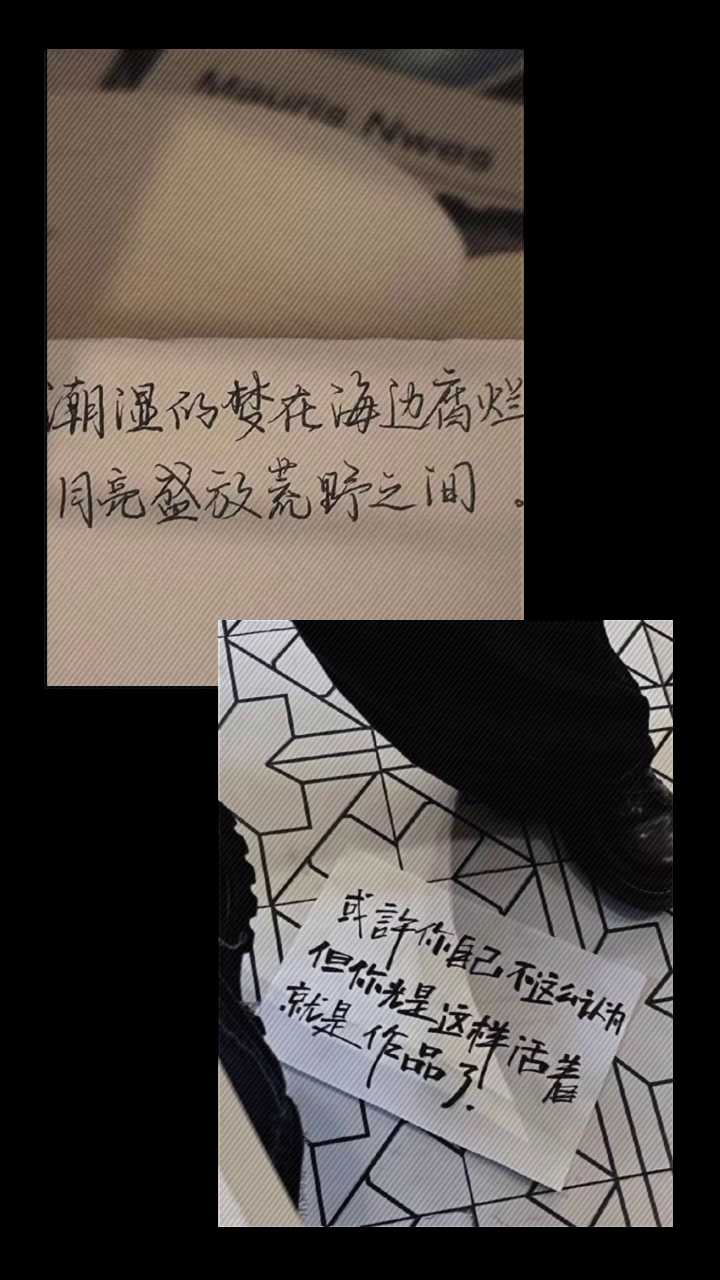 潮湿的梦在海边腐烂
月亮盛放荒野之间。
或許你自己不这么认为
但你光是这样活着
就是作品了.